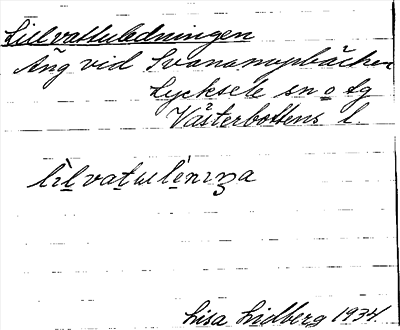 Lillvattuledningen
Äng vid Svanamyrbäcken
Lycksele sn o lg
Västerbottens l.
lìlvatulèniŋa
Lisa Lidberg 1934.